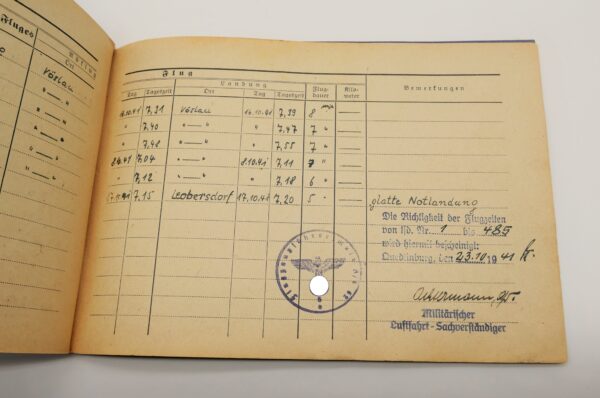 Fluges
Ort
Vöslau
Flug
Landung
Tag Tageszeit Ort Tag Tageszeit Flug-dauer Kilo-meter Bemerkungen
14.10.41 7,31 Vöslau 14.10.41 7,39 8 —
" 7,40 " — " " 7,47 7 " —
" 7,48 " — " " 7,55 7 " —
8.10.41 7,04 " — " 8.10.41 7,11 7 " —
" 7,12 " — " " 7,18 6 " —
17.10.41 7,15 Leobersdorf 17.10.41 7,20 5 " — glatte Notlandung
Die Richtigkeit der Flugzeiten
von lfd. Nr. 1 bis 485
wird hiermit bescheinigt:
Quedlinburg, den 23.10.1941
Militärischer
Luftfahrt-Sachverständiger